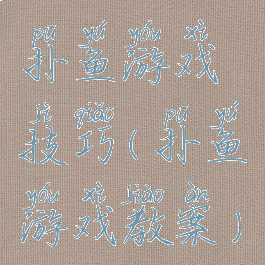 pū yú yóu xì
扑鱼游戏
jì qiǎo pū yú
技巧(扑鱼
yóu xì jiào àn
游戏教案)